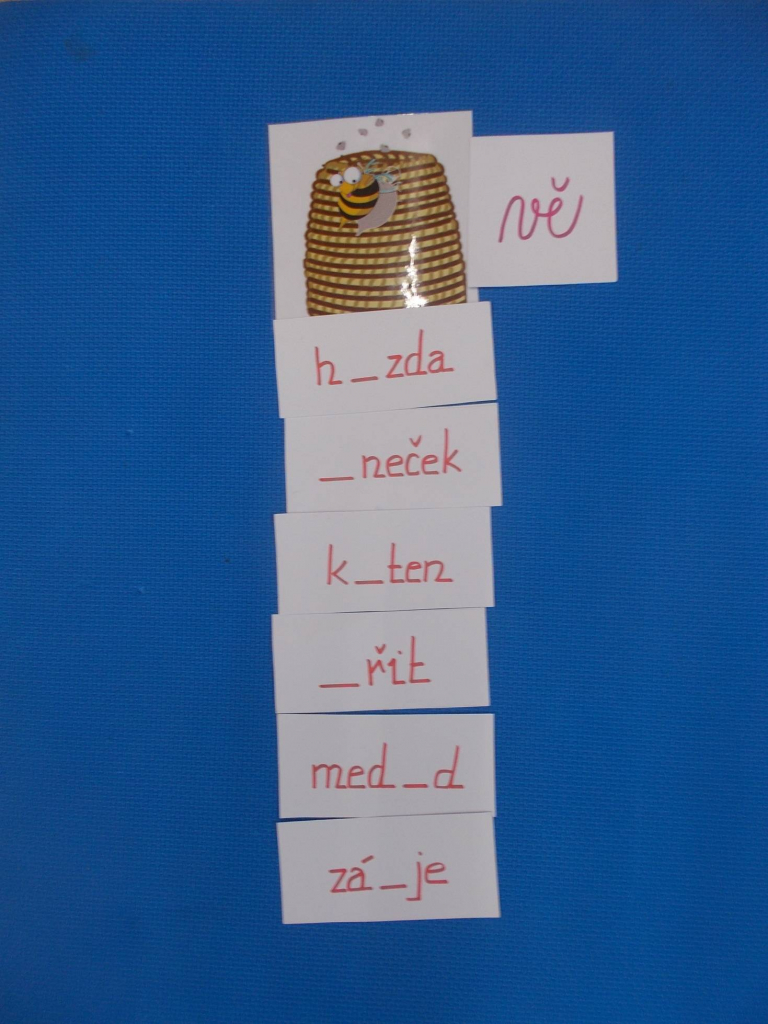 vě
h_zda
_neček
k_ten
_řit
med_d
zá_je